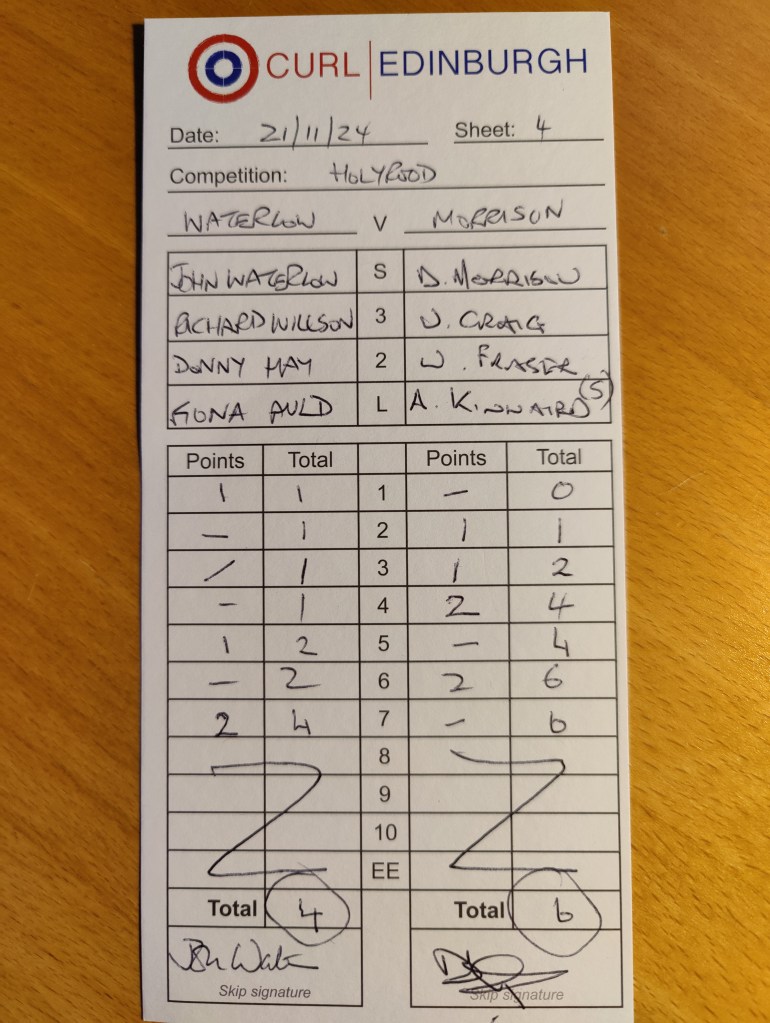 CURL | EDINBURGH
Date: 21/11/24 Sheet: 4
Competition: HOLYROOD
WATERLOW V MORRISON
JOHN WATERLOW S D. MORRISON
RICHARD WILLSON 3 J. CRAIG
DONNY HAY 2 W. FRASER
FIONA AULD L A. KINNAIRD (S)
Points Total Points Total
1 1 1 – 0
– 1 2 1 1
/ 1 3 1 2
– 1 4 2 4
1 2 5 – 4
– 2 6 2 6
2 4 7 – 6
8
9
10
EE
Total 4 Total 6
Skip signature Skip signature